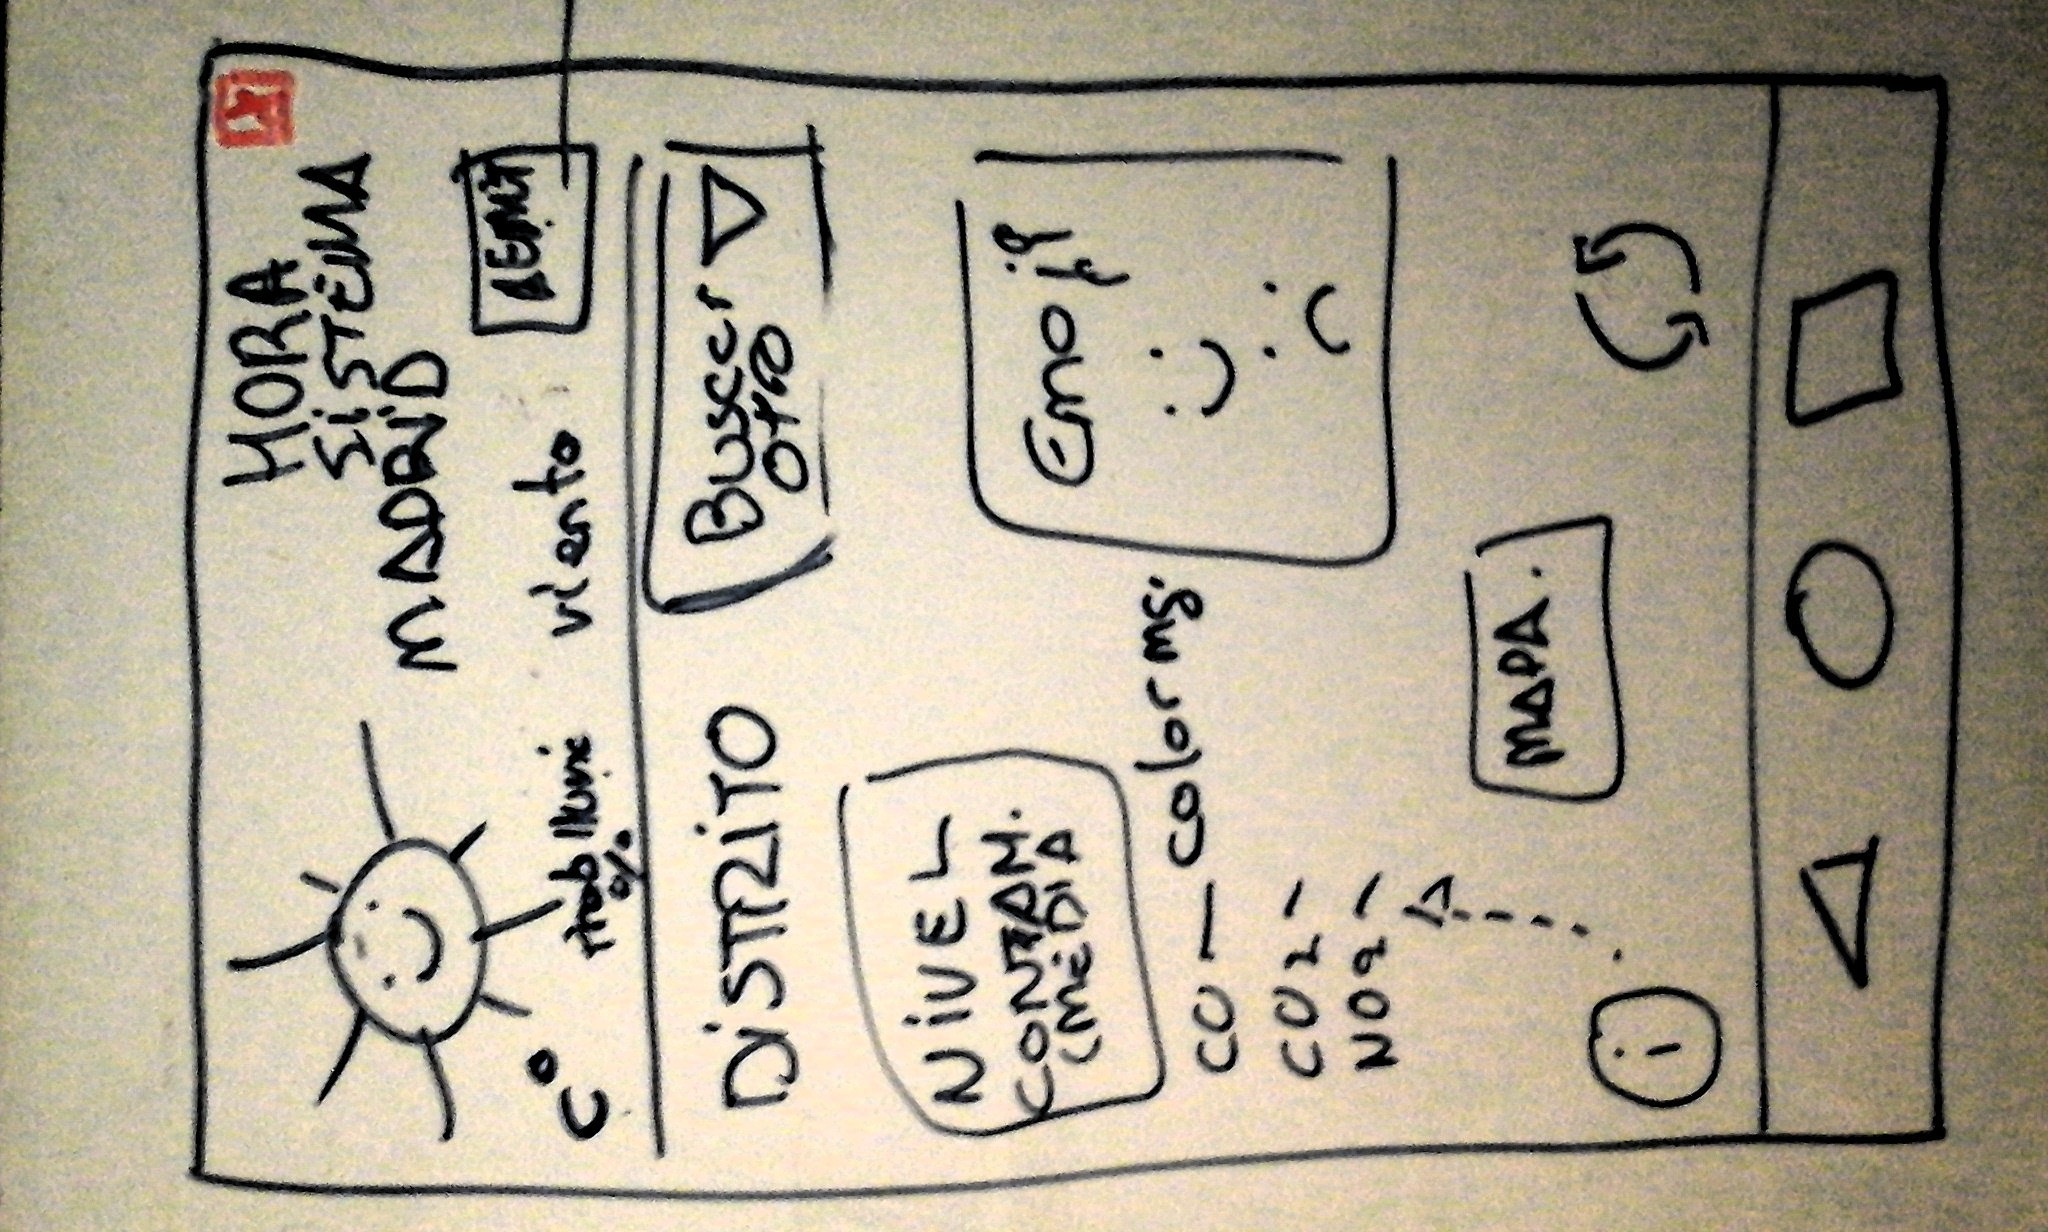 HORA
SiSTEMA
MADRiD
Cº
Prob lluvi
%
viento
DiSTRiTO
Buscar
otro
NiVEL
CONTAM.
(MEDIA
CO — color msg.
CO2 -
NO2 -
Emoji
i
MAPA.